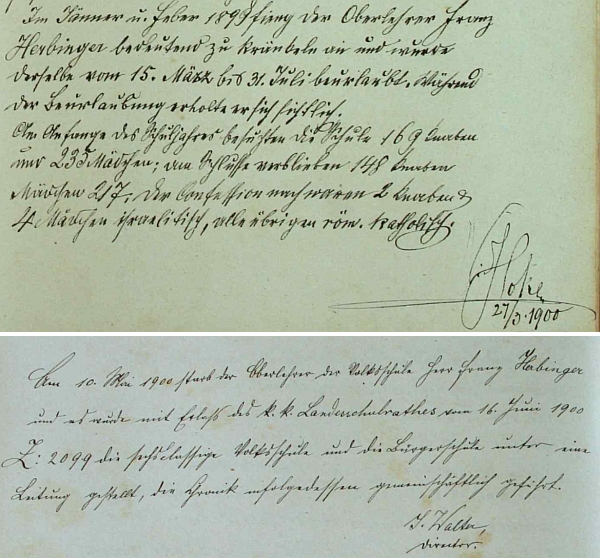 Im Jänner u. Feber 1899 fing der Oberlehrer Franz
Herbinger bedeutend zu kränkeln an und wurde
derselbe vom 15. März bis 31. Juli beurlaubt. Während
der Beurlaubung erholte er sich sichtlich.
Am Anfange des Schuljahres besuchten die Schule 169 Knaben
und 235 Mädchen; am Schlusse verblieben 148 Knaben
Mädchen 217. Der Confession nach waren 2 Knaben &
4 Mädchen israelitisch, alle übrigen röm. katholisch.
27/3. 1900
Am 10. Mai 1900 starb der Oberlehrer der Volksschule Herr Franz Herbinger
und es wurde mit Erlaß des k. k. Landesschulrathes vom 16. Juni 1900
Z: 2099 die sechsclassige Volksschule und die Bürgerschule unter eine
Leitung gestellt, die Chronik infolgedessen gemeinschaftlich geführt.
J. Walter,
Director.